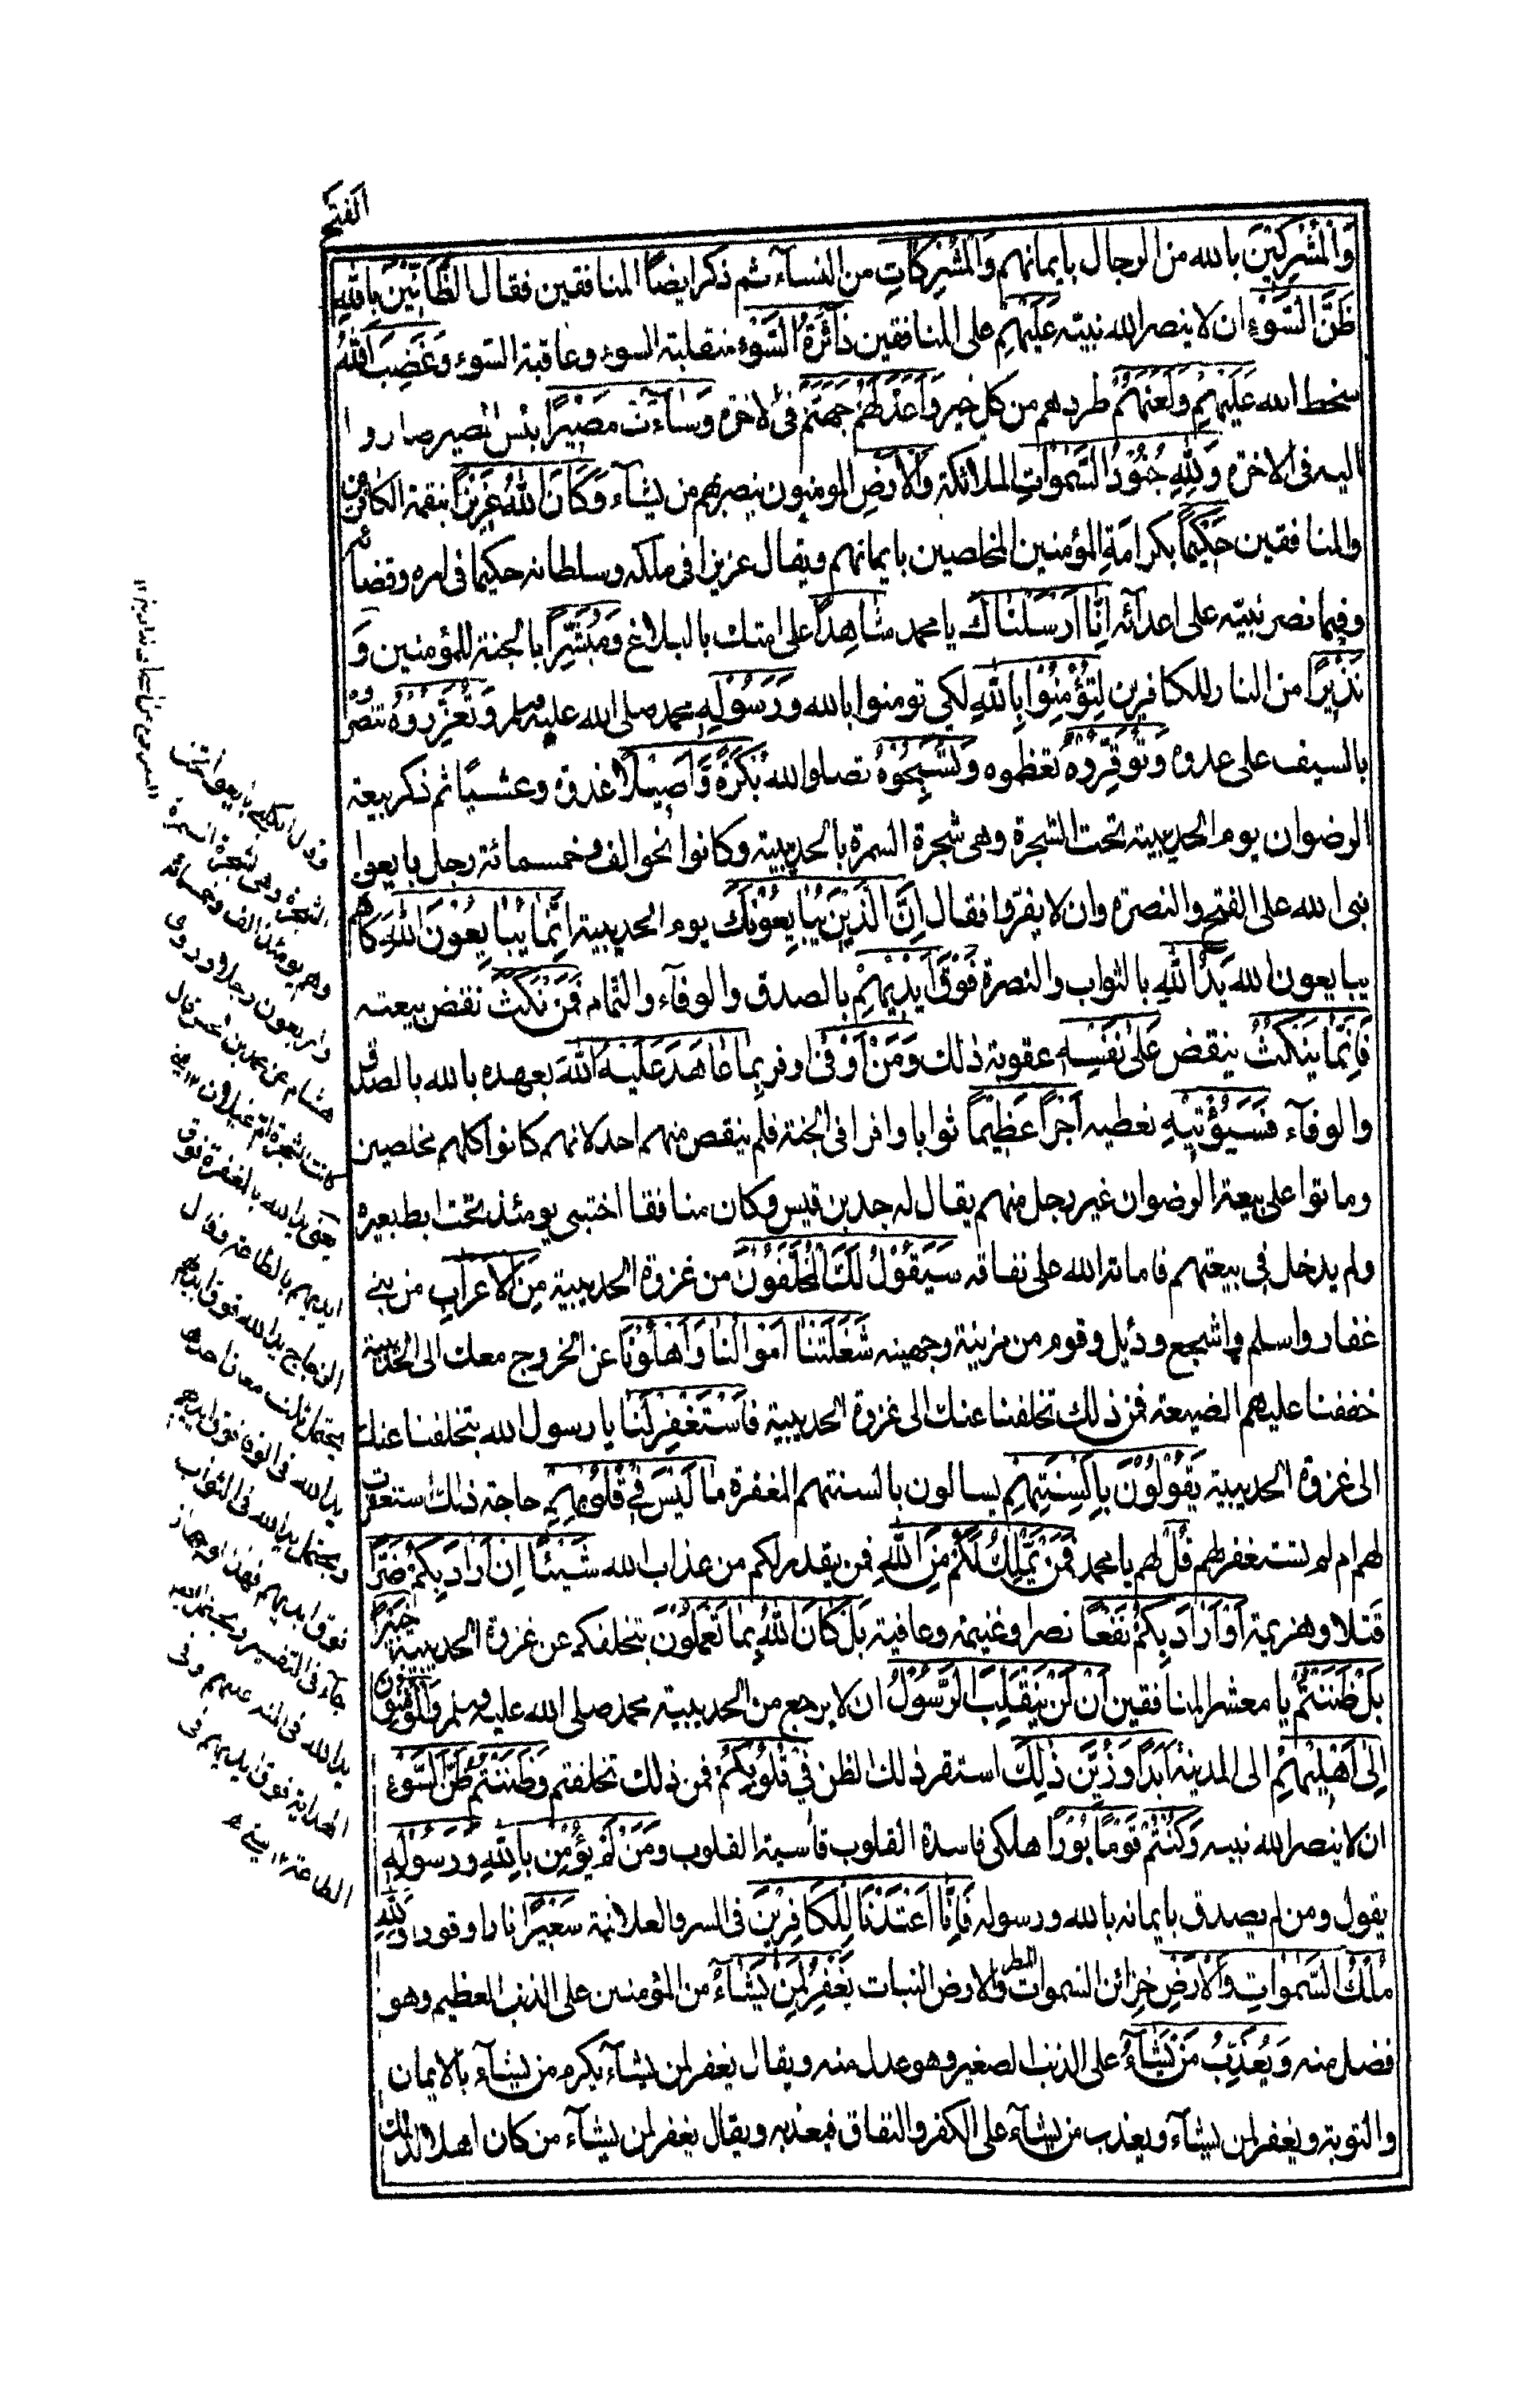 الفتح
وَالْمُشْرِكِيْنَ بالله من الرجال بايمانهم وَالْمُشْرِكَاتِ من النسآء ثم ذكر ايضاً المنافقين فقال الظَّانِّيْنَ بِاللهِ
ظَنَّ السَّوْءِ ان لا ينصر الله نبيّه عَلَيْهِمْ على المنافقين دَآئِرَةُ السَّوْءِ منقلبة السوء وعاقبة السوء وَغَضِبَ اللهُ
سخط الله عَلَيْهِمْ وَلَعَنَهُمْ طردهم من كل خير وَاَعَدَّ لَهُمْ جَهَنَّمَ فى الاخرة وَسَآءَتْ مَصِيْرًا بئس المصير صاروا
اليه فى الاخرة وَلِلّٰهِ جُنُوْدُ السَّمٰوَاتِ الملائكة وَالْاَرْضِ المومنون ينصربهم من يشآء وَكَانَ اللهُ عَزِيْزًا بنقمة الكافرين
والمنافقين حَكِيْمًا بكرامة المؤمنين المخلصين بايمانهم ويقال عزيزا فى ملكه وسلطانه حكيما فى امره وقضائه
وفيما نصر نبيّه على اعدآئه اِنَّا اَرْسَلْنَاكَ يا محمد شَاهِدًا على امتك بالبلاغ وَمُبَشِّرًا بالجنة للمؤمنين وَ
نَذِيْرًا من النار للكافرين لِتُؤْمِنُوْا بِاللهِ لكى تومنوا بالله وَرَسُوْلِهِ محمد صلى الله عليه وسلم وَتُعَزِّرُوْهُ تنصروه
بالسيف على عدوه وَتُوَقِّرُوْهُ تعظموه وَتُسَبِّحُوْهُ تصلوا لله بُكْرَةً وَّاَصِيْلًا غدوة وعشيًا ثم ذكر بيعة
الرضوان يوم الحديبية تحت الشجرة وهى شجرة السمرة بالحديبية وكانوا نحو الف وخمسمائة رجل بايعوا
نبى الله على الفتح والنصرة وان لا يفروا فقال اِنَّ الَّذِيْنَ يُبَايِعُوْنَكَ يوم الحديبية اِنَّمَا يُبَايِعُوْنَ اللهَ كانهم
يبايعون الله يَدُ اللهِ بالثواب والنصرة فَوْقَ اَيْدِيْهِمْ بالصدق والوفآء والتمام فَمَنْ نَكَثَ نقض بيعته
فَاِنَّمَا يَنْكُثُ ينقض عَلٰى نَفْسِهِ عقوبة ذلك وَمَنْ اَوْفٰى وفر بِمَا عَاهَدَ عَلَيْهُ اللهَ بعهده بالله بالصدق
والوفآء فَسَيُؤْتِيْهِ نعطيه اَجْرًا عَظِيْمًا ثوابا وافرا فى الجنة فلم ينقص منهم احد لانهم كانوا كلهم مخلصين
وماتوا على بيعة الرضوان غير رجل منهم يقال له جد بن قيس وكان منافقا اختبى يومئذ تحت ابط بعيره
ولم يدخل فى بيعتهم فاماته الله على نفاقه سَيَقُوْلُ لَكَ الْمُخَلَّفُوْنَ من غزوة الحديبية مِنَ الْاَعْرَابِ من بنى
غفار واسلم واشجع ودئيل وقوم من مزينة وجهينه شَغَلَتْنَا اَمْوَالُنَا وَاَهْلُوْنَا عن الخروج معك الى الحديبية
خففنا عليهم الضيعة فمن ذلك تخلفنا عنك الى غزوة الحديبية فَاسْتَغْفِرْ لَنَا يا رسول الله بتخلفنا عنك
الى غزوة الحديبية يَقُوْلُوْنَ بِاَلْسِنَتِهِمْ يسالون بالسنتهم المغفرة مَا لَيْسَ فِيْ قُلُوْبِهِمْ حاجة ذلك استغفرت
لهم ام لم تستغفر لهم قُلْ لهم يا محمد فَمَنْ يَّمْلِكُ لَكُمْ مِنَ اللهِ فمن يقدر لكم من عذاب الله شَيْئًا اِنْ اَرَادَ بِكُمْ ضَرًّا
قتلا وهزيمة اَوْ اَرَادَ بِكُمْ نَفْعًا نصرا وغنيمة وعافية بَلْ كَانَ اللهُ بِمَا تَعْمَلُوْنَ بتخلفكم عن غزوة الحديبية خَبِيْرًا
بَلْ ظَنَنْتُمْ يا معشر المنافقين اَنْ لَّنْ يَنْقَلِبَ الرَّسُوْلُ ان لا يرجع من الحديبية محمد صلى الله عليه وسلم وَالْمُؤْمِنُوْنَ
اِلٰى اَهْلِيْهِمْ الى المدينة اَبَدًا وَزُيِّنَ ذٰلِكَ استقر ذلك الظن فِيْ قُلُوْبِكُمْ فمن ذلك تخلفتم وَظَنَنْتُمْ ظَنَّ السَّوْءِ
ان لا ينصر الله نبيه وَكُنْتُمْ قَوْمًا بُوْرًا هلكى فاسدة القلوب قاسية القلوب وَمَنْ لَمْ يُؤْمِنْ بِاللهِ وَرَسُوْلِهِ
يقول ومن لم يصدق بايمانه بالله ورسوله فَاِنَّا اَعْتَدْنَا لِلْكَافِرِيْنَ فى السر والعلانية سَعِيْرًا نارا وقودا وَلِلّٰهِ
مُلْكُ السَّمٰوَاتِ وَالْاَرْضِ خزائن السموات المطر والارض النبات يَغْفِرُ لِمَنْ يَّشَآءُ من المؤمنين على الذنب العظيم وهو
فضل منه وَيُعَذِّبُ مَنْ يَّشَآءُ على الذنب الصغير وهو عدل منه ويقال يغفر لمن يشآء يكرم من يشآء بالايمان
والتوبة ويغفر لمن يشآء ويعذب من يشآء على الكفر والنفاق فيعذبه ويقال يغفر لمن يشآء من كان اهلا لذلك
الشجرة وهى شجرة السمرة
وهم يومئذ الف وخمسمائة
واربعون رجلا وروى
هشام عن محمد بن الحسن قال
كانت الشجرة ام غيلان
يعنى يد الله بالمغفرة فوق
ايديهم بالطاعة وقال
الزجاج يد الله فوق ايديهم
يحتمل ثلث معان احدها
يد الله فى الوفا فوق ايديهم
ويحتمل يد الله فى الثواب
فوق ايديهم فهذان وجهان
جآء فى التفسير ويحتمل
يد الله فى المنة عليهم وفى
الهداية فوق ايديهم فى
الطاعة